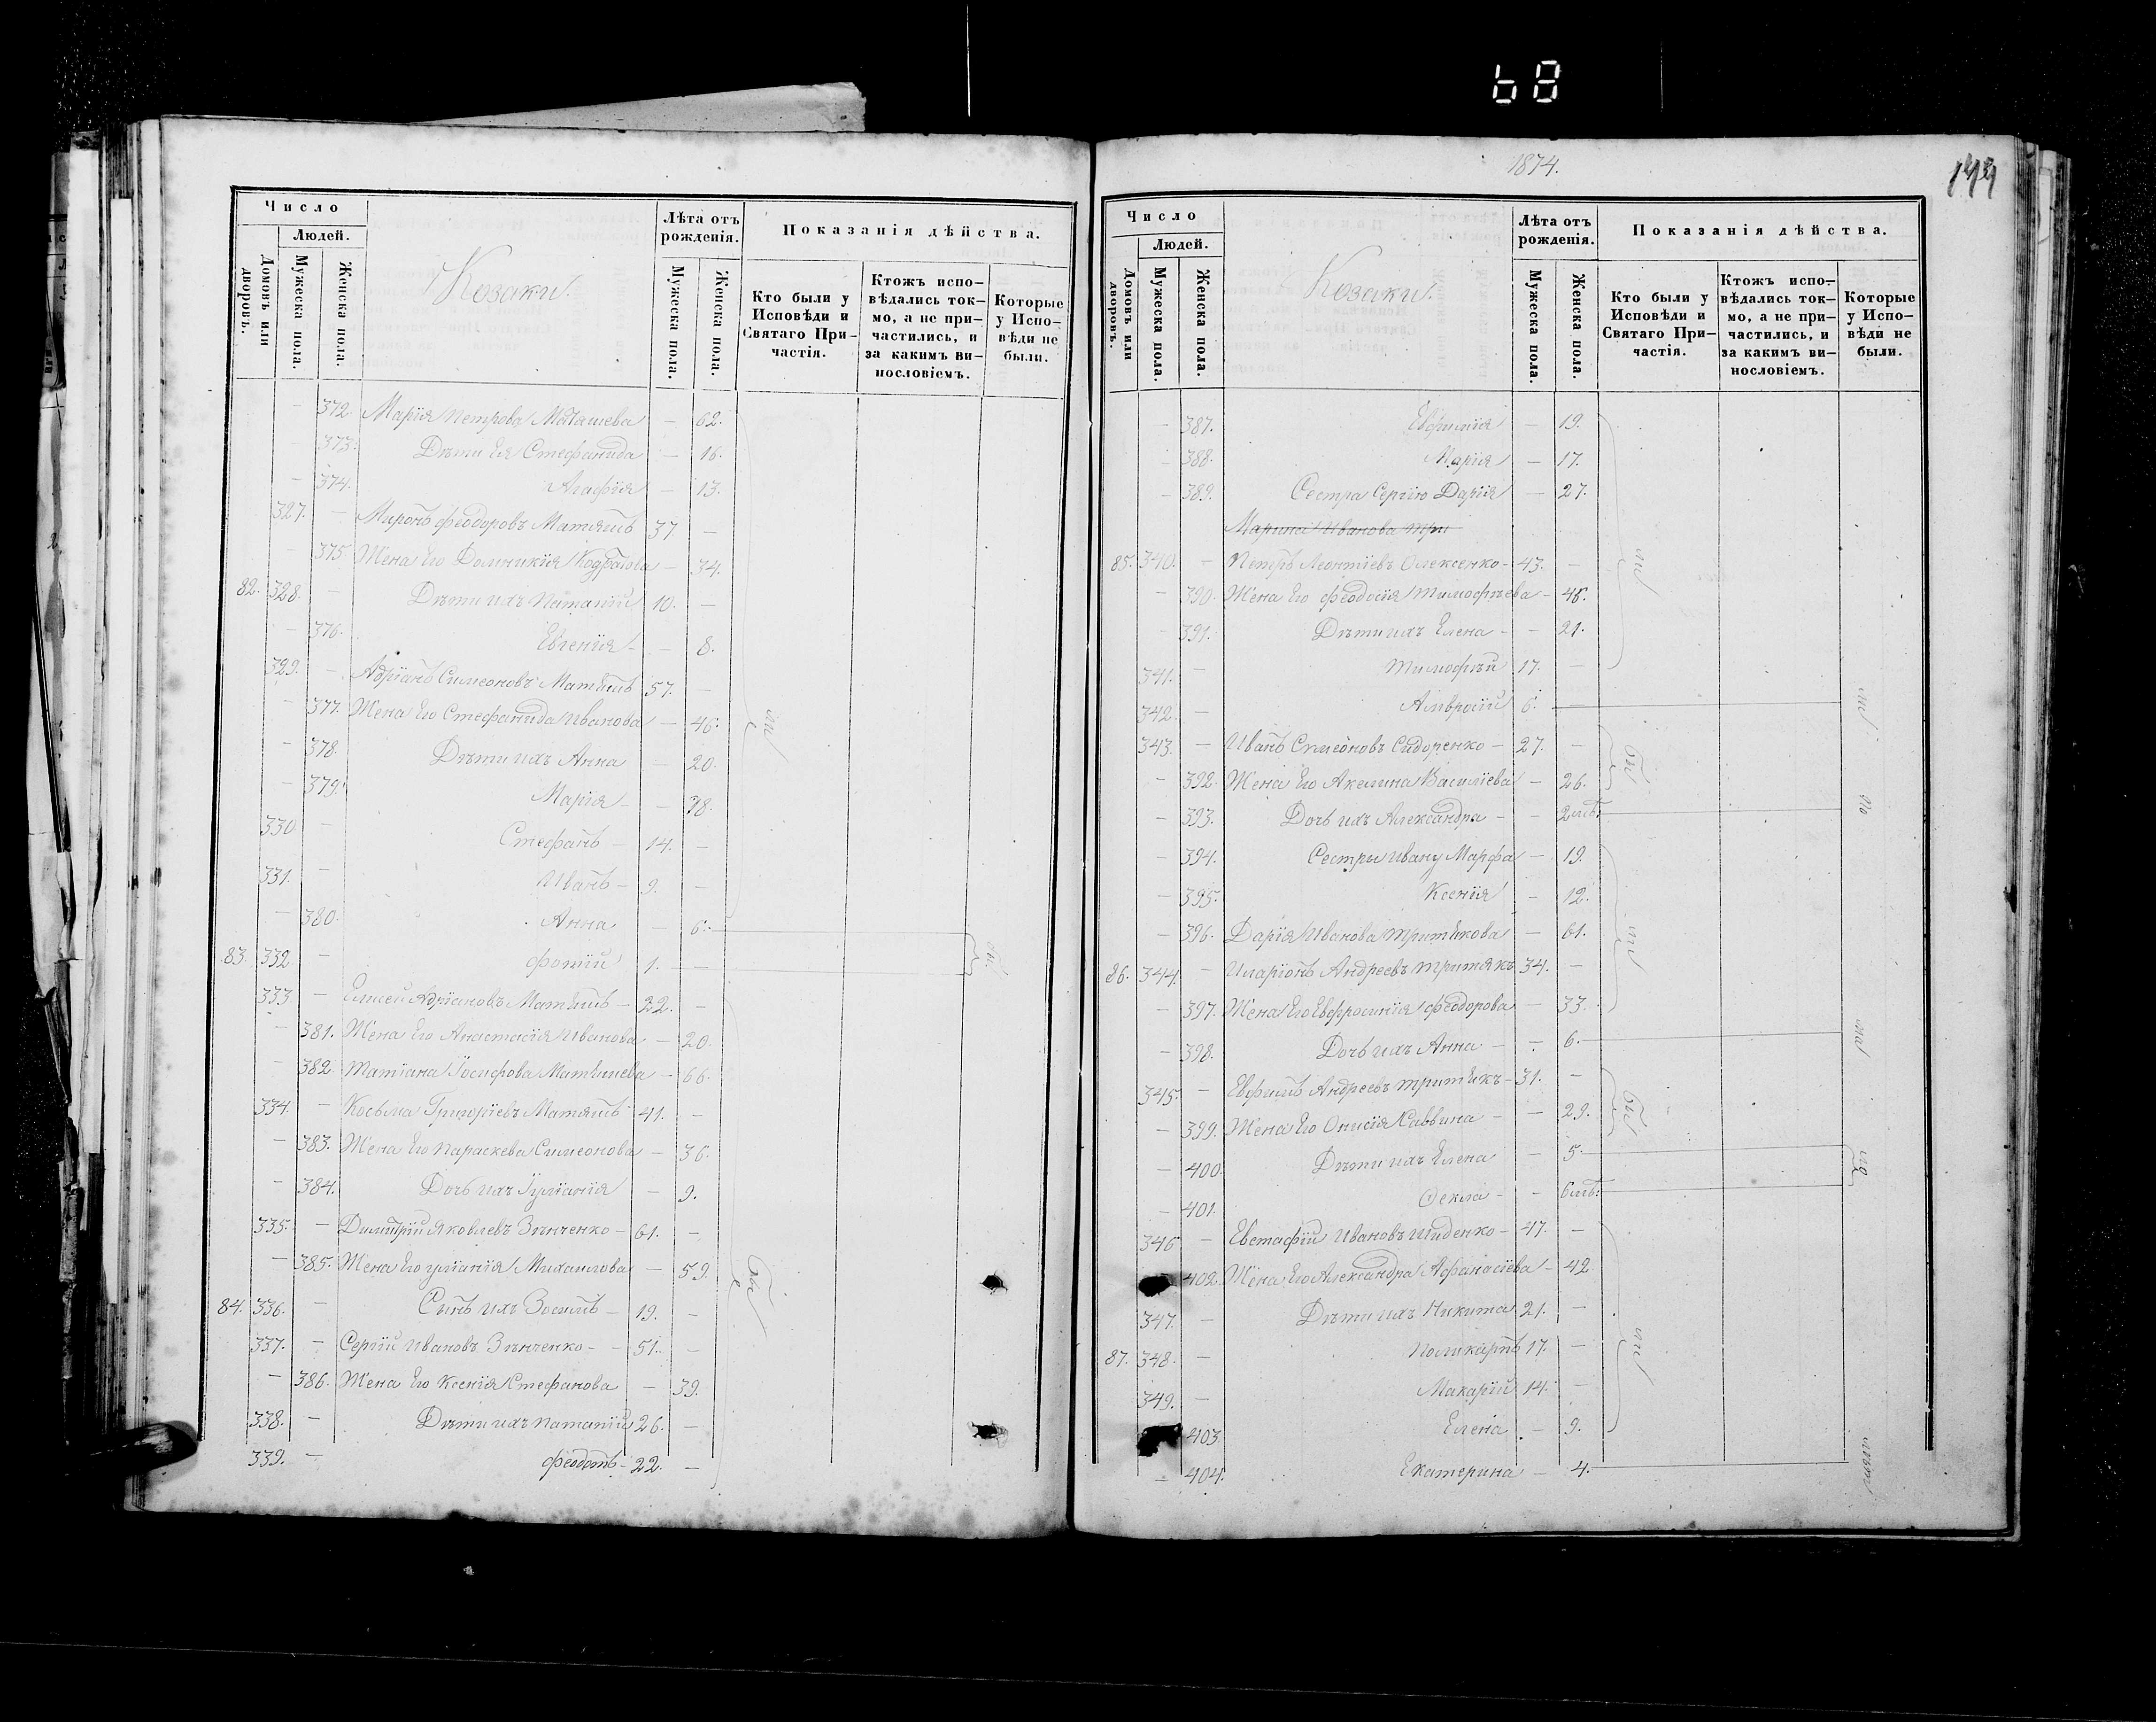 68
Число
Людей.
Домовъ или дворовъ.
Мужеска пола.
Женска пола.
Козаки.
Лѣта отъ рожденія.
Мужеска пола.
Женска пола.
Показанія дѣйства.
Кто были у Исповѣди и Святаго При-частія.
Ктожъ испо-вѣдались ток-мо, а не при-частились, и за какимъ ви-нословіемъ.
Которые у Испо-вѣди не были.
372. Марія Петрова Матяшева — 62.
373. Дѣти Ея Стефанида — 16.
374. Агафія — 13.
327. — Миронъ Феодоровъ Матяшъ 37. —
375. Жена Его Домникія — 34.
82. 328. — Дѣти ихъ Потапій 10. —
376. Евгенія — 8.
329. — Адріанъ Симеоновъ Матяшъ 57. —
377. Жена Его Стефанида Иванова — 46.
378. Дѣти ихъ Анна — 20.
379. Марія — 18.
330. — Стефанъ — 14. —
331. — Иванъ — 9. —
380. Анна — 6.
83. 332. — Фотій 1. —
333 — Елисей Адріановъ Матяшъ — 22. —
381. Жена Его Анастасія Иванова — 20.
382. Татіана Іосифова Матяшева — 66.
334. — Косьма Григоріевъ Матяшъ 41. —
383. Жена Его Параскева Симеонова — 36.
384. Дочь ихъ Іуліанія — 9.
335. — Димитрій Яковлевъ Зѣнченко — 61. —
385. Жена Его Іуліанія Михаилова — 59.
84. 336. — Сынъ ихъ Зосимъ — 19. —
337. — Сергій Ивановъ Зѣнченко — 51. —
386. Жена Его Ксенія Стефанова — 39.
338. — Дѣти ихъ Потапій 26. —
339. — Феодотъ — 22. —
1874.
Число
Людей.
Домовъ или дворовъ.
Мужеска пола.
Женска пола.
Козаки.
Лѣта отъ рожденія.
Мужеска пола.
Женска пола.
Показанія дѣйства.
Кто были у Исповѣди и Святаго При-частія.
Ктожъ испо-вѣдались ток-мо, а не при-частились, и за какимъ ви-нословіемъ.
Которые у Испо-вѣди не были.
— 387. Евфимія — 19.
— 388. Марія — 17.
— 389. Сестра Сергію Дарія — 27.
Марина Иванова Три
85. 340. — Петръ Леонтіевъ Олексенко — 43. —
— 390. Жена Его Феодосія Тимофѣева — 45.
— 391. Дѣти ихъ Елена — 21.
341. — Тимофѣй 17. —
342. — Амвросій 6. —
343. — Иванъ Симеоновъ Сидоренко — 27. —
— 392. Жена Его Акелина Василіева — 26.
— 393. Дочь ихъ Александра — 2 мѣ.
— 394. Сестры Ивану Марфа — 19.
— 395. Ксенія — 12.
— 396. Дарія Иванова Тритякова — 61.
86. 344. — Иларіонъ Андреевъ Тритякъ 34. —
— 397. Жена Его Евфросинія Феодорова — 33.
— 398. Дочь ихъ Анна — 6.
345. — Евфимъ Андреевъ Тритякъ — 31. —
— 399. Жена Его Онисія Саввина — 29.
— 400. Дѣти ихъ Елена — 5.
— 401. Фекла — 6 мѣ.
346 — Евстафій Ивановъ — 47. —
402. Жена Его Александра Афанасіева — 42.
347. — Дѣти ихъ Никита 21. —
87. 348. — Поликарпъ 17. —
349. — Макарій 14. —
403. Елена — 9.
— 404. Екатерина — 4.